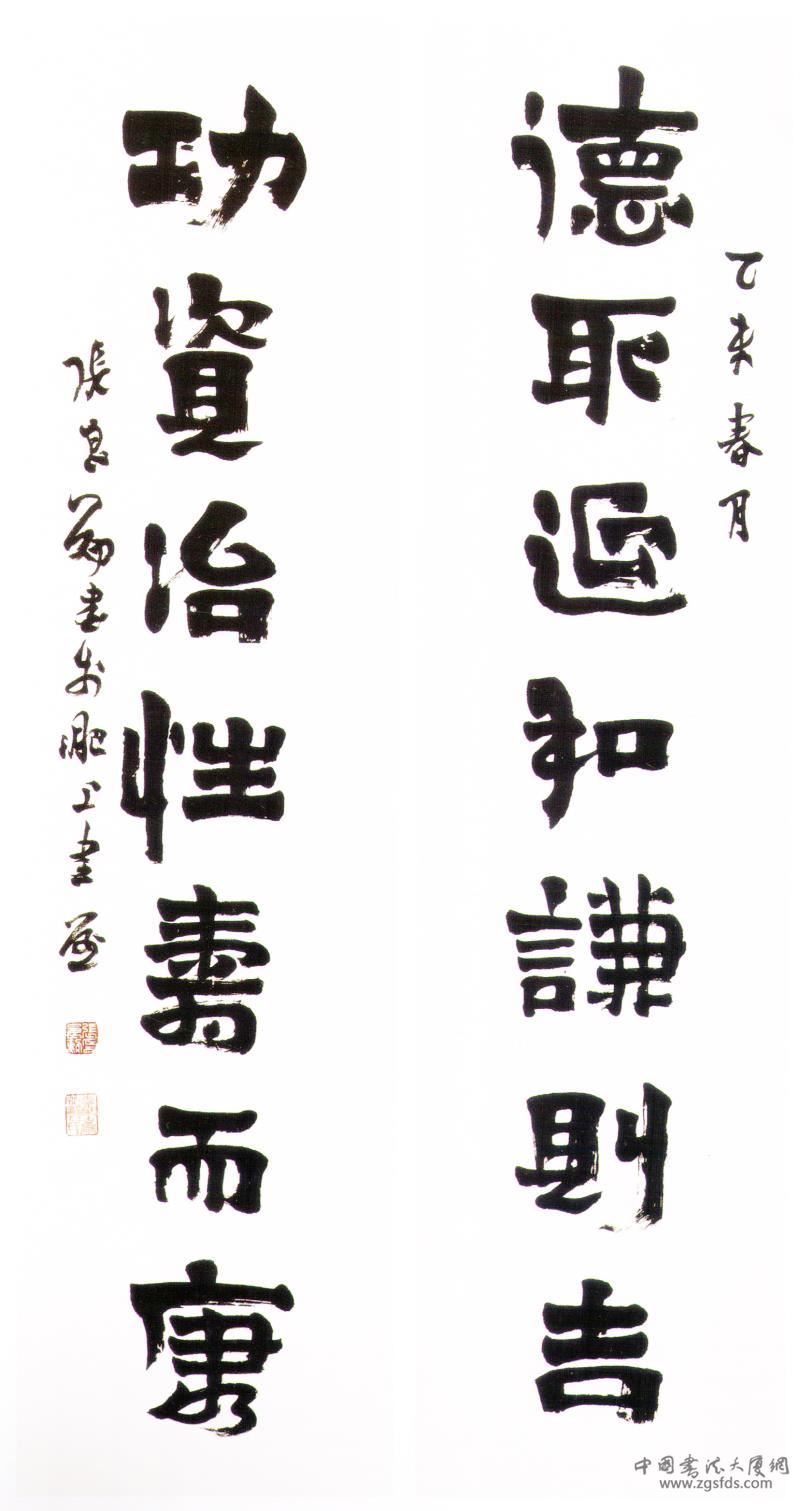 乙未春月
德取延和謙則吉
功資治性壽而康
張良勛書於肥上
中國書法大廈網
www.zgsfds.com